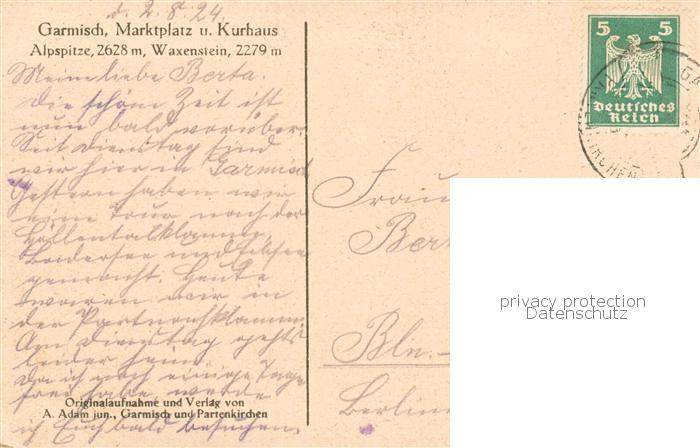 d. 2. 8. 24.
Garmisch, Marktplatz u. Kurhaus
Alpspitze, 2628 m, Waxenstein, 2279 m
Meine liebe Berta.
Die schöne Zeit ist
nun bald vorüber.
Seit Dienstag sind
wir hier in Garmisch
Gestern haben wir
eine Tour nach der
Höllentalklamm,
Badersee und Eibsee
gemacht. Heute
waren wir in
der Partnachklamm.
Am Dienstag gehts
leider heim
Da ich noch einige Tage
frei habe, werde
ich Euch bald besuchen
Originalaufnahme und Verlag von
A. Adam jun., Garmisch und Partenkirchen
5 5
Deutsches
Reich
GA
KIRCHEN
Frau
Bert
Bln.-
Berlin
privacy protection
Datenschutz